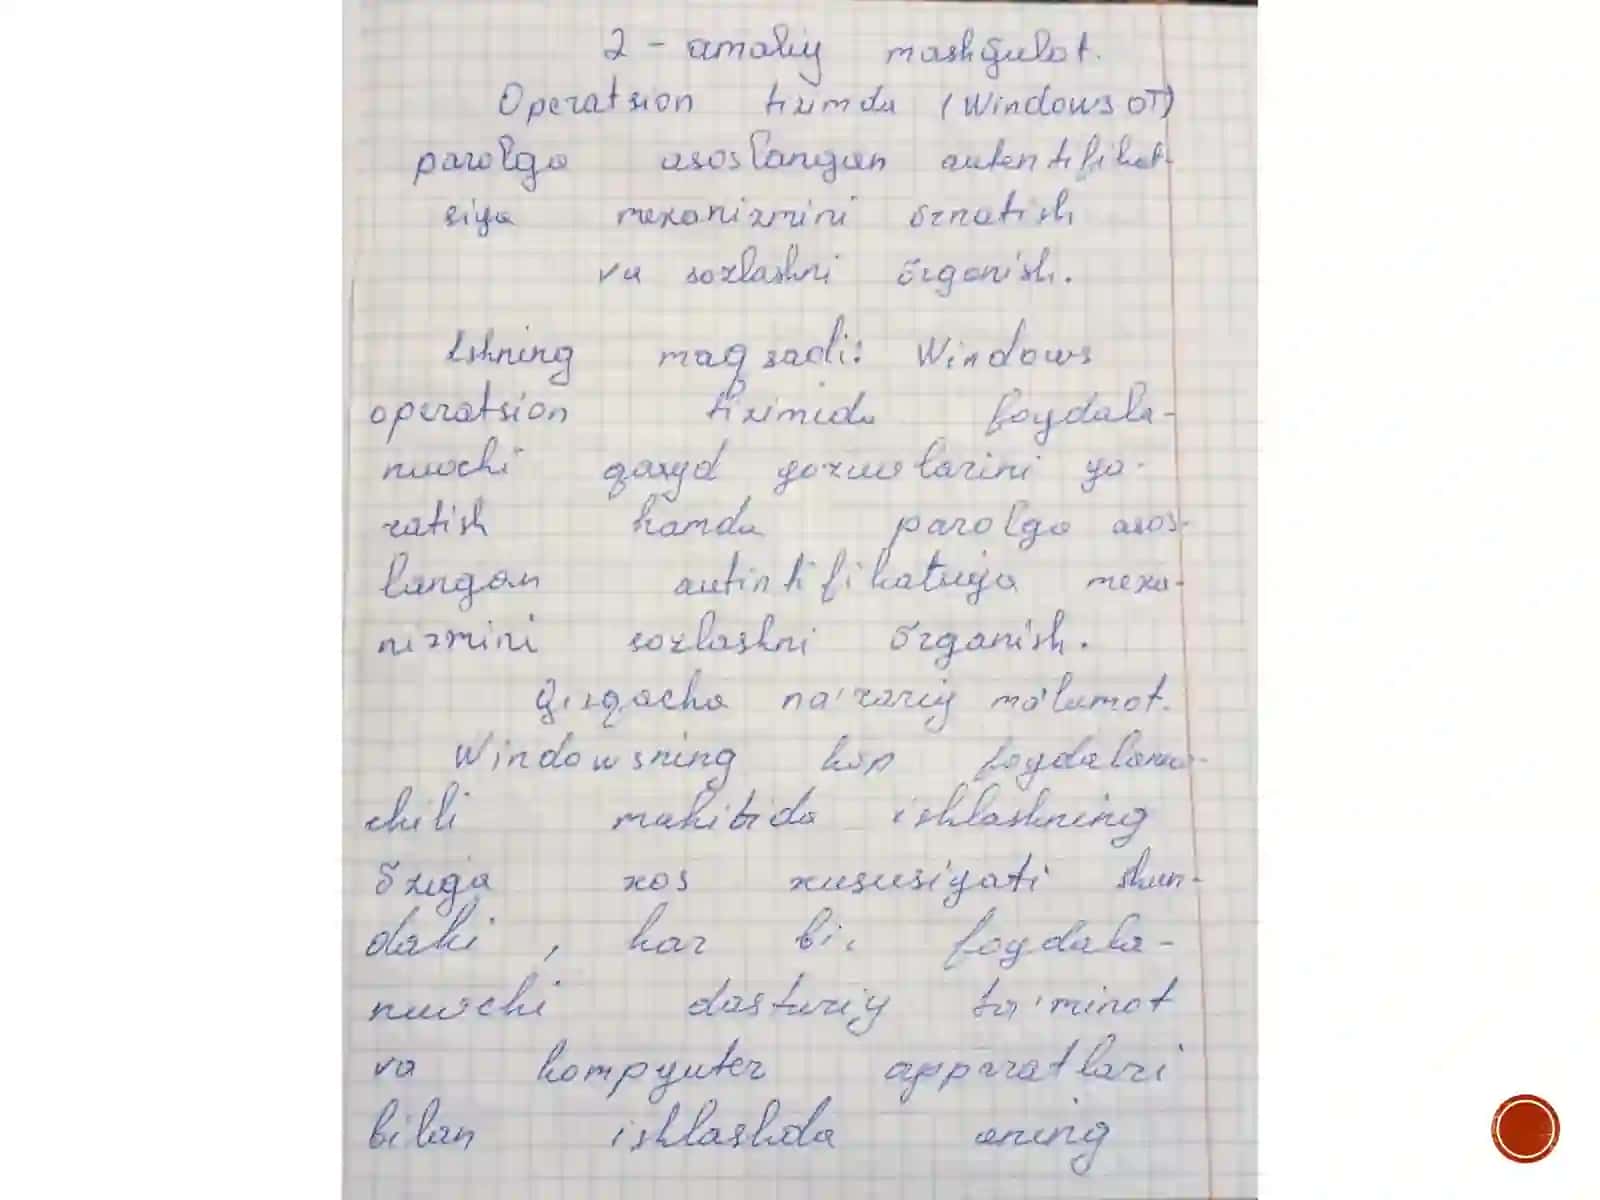 2 - amaliy mashğulot.
Operatsion tizimda (Windows OT)
parolga asoslangan autentifikat-
siya mexanizmini ōrnatish
va sozlashni ōrganish.
Ishning maqsadi: Windows
operatsion tizimida foydala-
nuvchi qayd yozuvlarini ya-
ratish hamda parolga asos-
langan autintifikatsiya mexa-
nizmini sozlashni ōrganish.
Qisqacha na'zariy ma'lumot.
Windowsning kōp foydalanuv-
chili muhitida ishlashning
ōziga xos xususiyati shun-
daki, har bir foydala-
nuvchi dasturiy ta'minot
va kompyuter apparatlari
bilan ishlashda oning